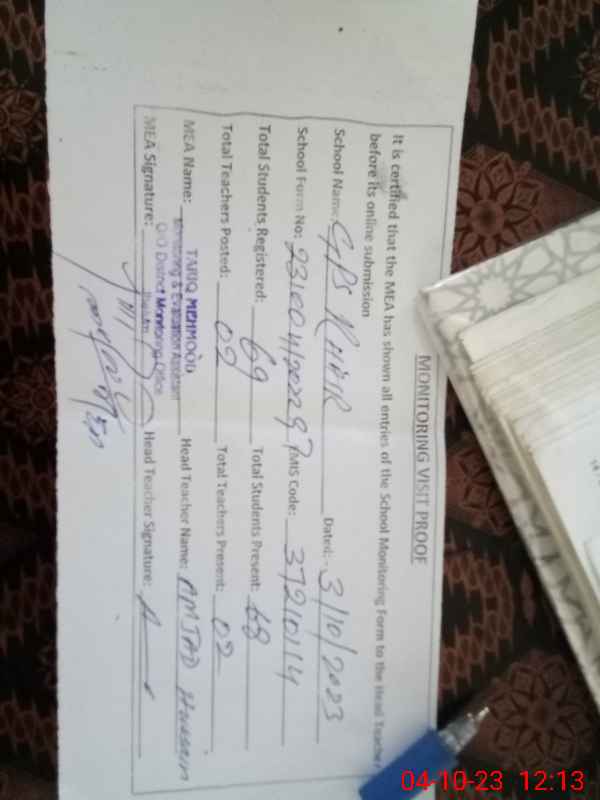 MONITORING VISIT PROOF
It is certified that the MEA has shown all entries of the School Monitoring Form to the Head Teacher
before its online submission
School Name: GPS Dated:- 3/10/2023
School Form No: EMIS Code: 37210114
Total Students Registered: 69 Total Students Present: 68
Total Teachers Posted: 02 Total Teachers Present: 02
MEA Name: TARIQ MEHMOOD Head Teacher Name: AMJAD Hussain
Monitoring & Evaluation Assistant
O/O District Monitoring Office
MEA Signature: Head Teacher Signature:
04-10-23 12:13